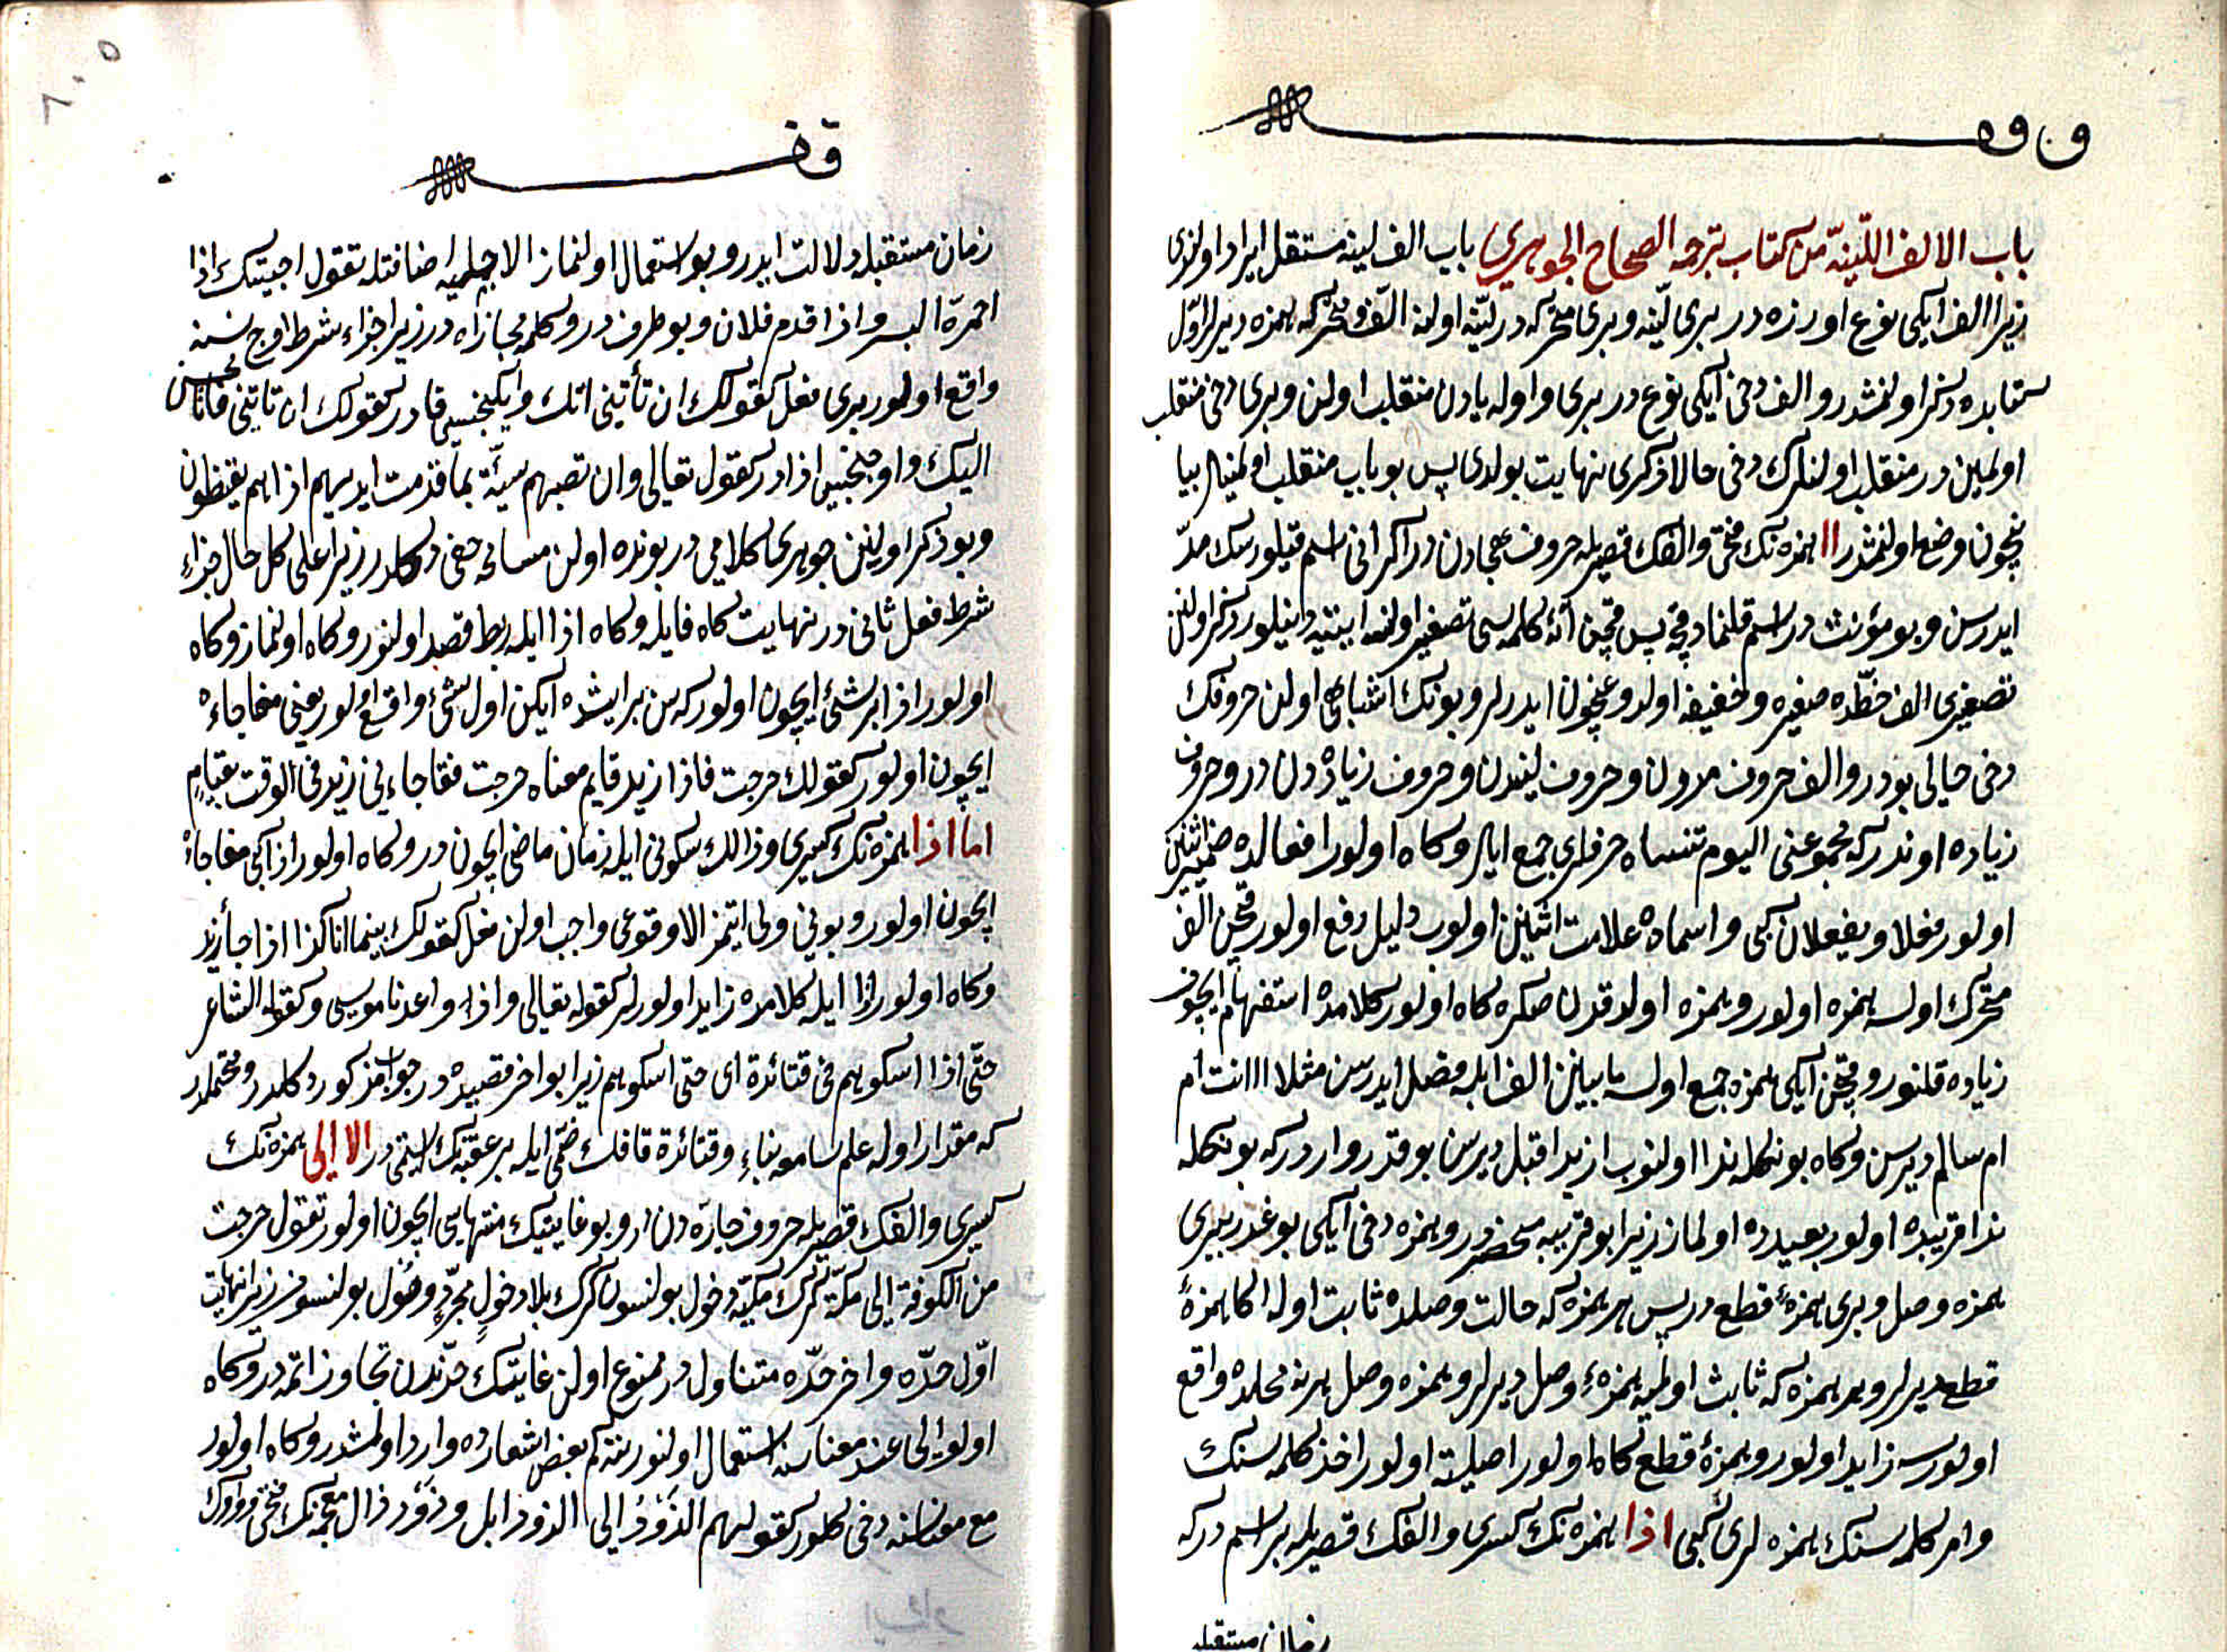 ف وه
باب الالف اللّينة من كتاب ترجمه الصحاح الجوهري بابِ الف لينه مستقل ايراد اولندى
زيرا الف ايكى نوع اوزره در برى لينه و برى متحركه در لينه اولنه الف و متحركه همزه ديرلر اول
كتابده ذكر اولنمشدر و الف دخى ايكى نوع در برى واو و يادن منقلب اولن و برى دخى منقلب
اولمين در منقلب اولنلرك دخى حالا ذكرى نهايت بولدى پس بو باب منقلب اولمينلر
ايچون وضع اولنمشدر اا همزه نك فتحى و الفك قصريله حروف هجادن در اكر انى اسم قيلورسك مدّ
ايدرسن و بو مؤنث در اسم قلنمادقچه پس قچن ا كلمه سى تصغير اولنسه اييّه دينيلور ذكر اولنن
تصغيرى الف خطده صغيره و خفيفه اولدوغيچون ايدرلر و بونك اشباهى اولن حروفك
دخى حالى بودر و الف حروف مددن و حروف ليندن و حروف زيادەدن در و حروف
زياده اوندر كه مجموعنى اليوم تنساه حرفلرى جمع ايلر و كاه اولور افعالده ضمير اثنين
اولور فعلا و يفعلان كبى و اسماده علامت اثنين اولوب دليل رفع اولور قچن الف
متحرك اولسه همزه اولور و همزه اولدقدن صكره كاه اولور كلامده استفهام ايچون
زياده قلنور و قچن ايكى همزه جمع اولسه مابينن الف ايله فصل ايدرسن مثلا ااانت ام
ام سالم ديرسن و كاه بونكله ندا اولنوب ازيد اقبل ديرسن بو قدر وارد ركه بونكله
ندا قريبده اولور بعيدده اولماز زيرا بو قريبه منحصردر و همزه دخى ايكى بوغدر بيرى
همزه وصل و برى همزۀ قطع در پس هر همزه كه حالت وصلده ثابت اوله اكا همزۀ
قطع ديرلر و هر همزه كه ثابت اولميه همزۀ وصل ديرلر و همزه وصل هر نه محلده واقع
اولورسه زايد اولور و همزۀ قطع كاه اولور اصليه اولور اخذ كلمه سنك
و امر كلمه سنك همزه لرى كبى اذا همزه نك كسرى و الفك قصريله بر اسم در كه
زمان مستقبله
٦٠٥
ق ف
زمان مستقبله دلالت ايدر و بو استعمال اولنماز الا جمليه اضافتله تقول اجيتك اذا
احمرّ البسر و اذا قدم فلان و بو ظرف در و كلمه مجازاه در زيرا جزاء شرط اوج نسنه
واقع اولور برى فعل كقولك ان تأتنى اتك و ايكنجيسى فا در كقولك ان تاتنى فانا محسن
اليك و اوچنجيسى اذا در كقوله تعالى وان تصبهم سيئة بما قدمت ايديهم اذا هم يقنطون
و بو ذكر اولنن جوهرى كلامى در بونده اولن مسامحه خفى دكلدر زيرا على كل حال جزاء
شرط فعل ثانى در نهايت كاه فا يله و كاه اذا ايله ربط قصد اولنور و كاه اولنماز و كاه
اولور اذا بر شئ ايچون اولور كه سن بر ايشده ايكن اول شئ واقع اولور يعنى مفاجاءه
ايچون اولور كقولك خرجت فاذا زيد قايم معناه خرجت ففاجاءنى زيد فى الوقت بقيام
اما اذا همزه نك كسرى و ذالك سكونى ايله زمان ماضى ايچون در و كاه اولور اذا كبى مفاجاءه
ايچون اولور و بونى ولى ايتمز الا وقوعى واجب اولن فعل كقولك بينما انا كذا اذ جاء زيد
و كاه اولور اذا ايله كلامده زايد اولورلر كقوله تعالى و اذ واعدنا موسى و كقول الشاعر
حتّى اذا اسكوهم فى قتائدة اى حتى اسكوهم زيرا بو اخر قصيده در جواب مذكور دكلدر و محتملدر
كه مقدر اوله علم سامعه بناء و قتائدة قافك ضمى ايله بر عقبه نك اسمى در الا الى همزه نك
كسرى و الفك قصريله حروف جارّه دن در و بو غايتك منتهاسى ايچون اولور تقول خرجت
من الكوفة الى مكّة كرك مكّيه دخول بولنسون كرك بلا دخول مجرّد وصول بولنسون زيرا نهايت
اوّل حدّه و اخر حدّه متناول در ممنوع اولن غايتك حدّندن تجاوز ايتمه در و كاه
اولور الى عند معناسنه استعمال اولنور نته كم بعض اشعارده وارد اولمشدر و كاه اولور
مع معناسنه دخى كلور كقولهم الذّودُ الى الذود ابل و ذَوْد ذال معجمه نك فتحى و واوك